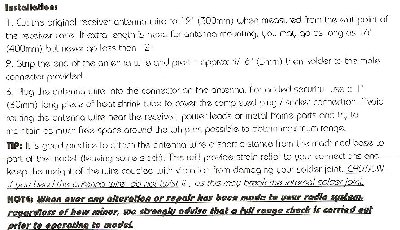 Installation:
1. Cut the original receiver antenna wire to 12" (300mm) when measured from the exit point of
the receiver case. If extra length is need for antenna mounting, you may go as long as 16"
(400mm) but never go less than 12"
2. Strip the end of the antenna wire and pre-tin approx 3/16" (5mm) then solder to the male
connector provided.
3. Plug the antenna wire into the connector on the antenna. For added security use a 1"
long piece of heat shrink tube to cover the completed plug / solder connection. Avoid
routing the antenna wire near the receiver, power leads or metal frame parts and try to
maintain as much free space around the whip as possible to obtain maximum range.
TIP: It is good practice to the antenna wire a short distance from the machined base to
part of the model (leaving some slack). This will provide strain relief to your connections and
keep the weight of the wire coupled with vibration from damaging your solder joint. CAUTION
if you bend the antenna wire, do not twist it, as this may break the internal solder joint.
NOTE: When ever any alteration or repair has been made to your radio system
regardless of how minor, we strongly advise that a full range check is carried out
prior to operating to model.